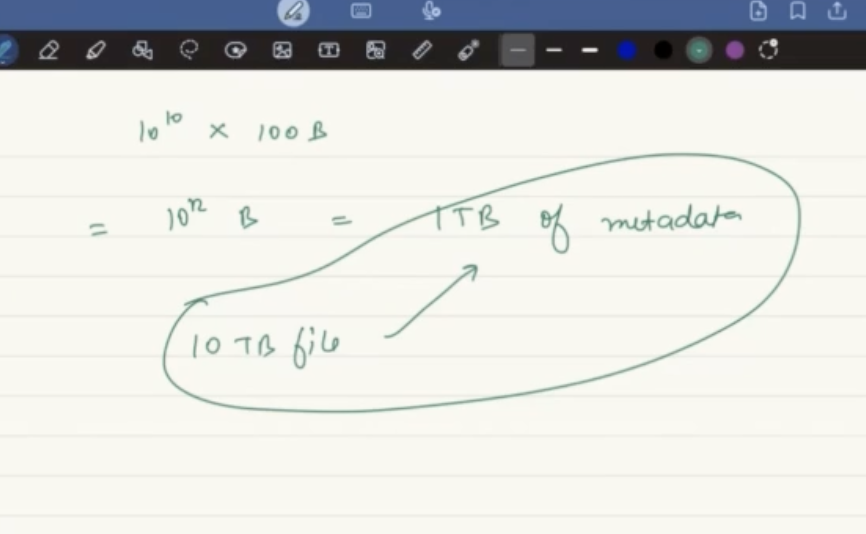 10¹⁰ × 100 B
= 10¹² B = 1 TB of metadata
10 TB file